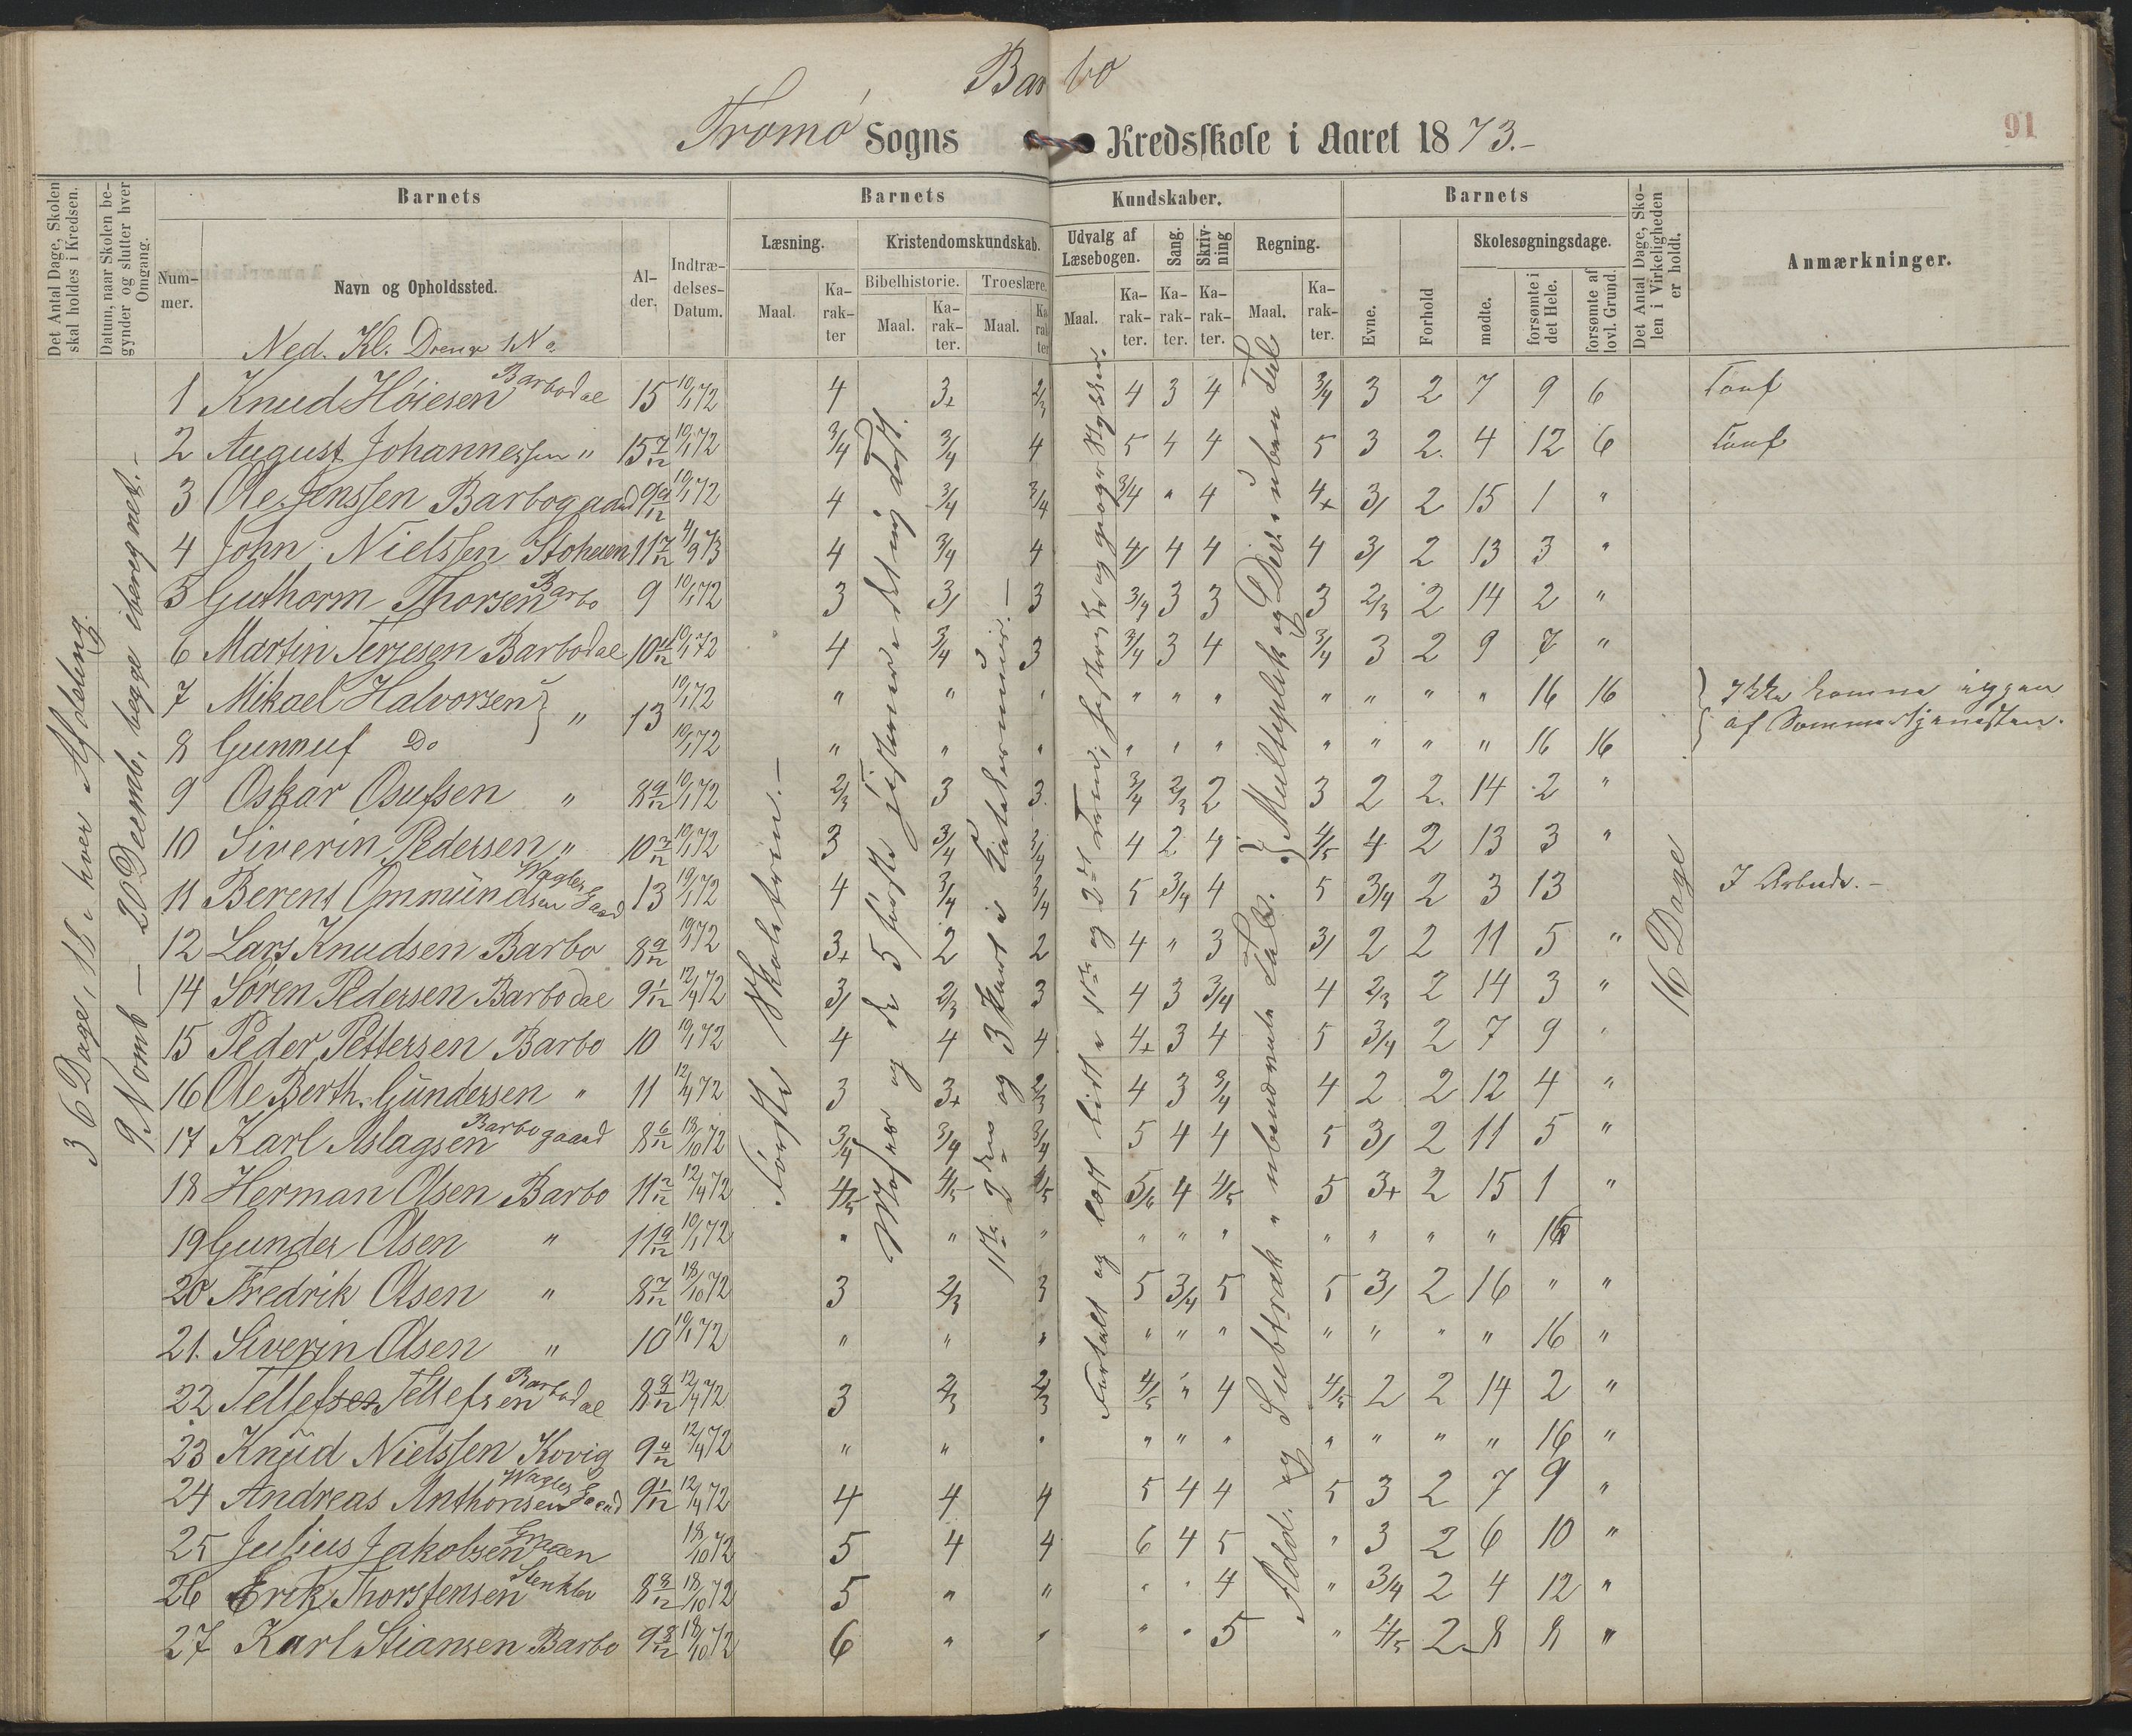 Barbo
Tromø Sogns Kredsskole i Aaret 1873.-
91
Det Antal Dage, Skolen skal holdes i Kredsen.
Datum, naar Skolen begynder og slutter hver Omgang.
Barnets
Barnets
Kundskaber.
Barnets
Det Antal Dage, Skolen i Virkeligheden er holdt.
Anmærkninger.
Nummer.
Navn og Opholdssted.
Alder.
Indtrædelses-Datum.
Læsning.
Kristendomskundskab.
Udvalg af Læsebogen.
Sang.
Skrivning
Regning.
Evne.
Forhold
Skolesøgningsdage.
Maal.
Karakter
Bibelhistorie.
Troeslære.
Maal.
Karakter.
Maal.
Karakter
Maal.
Karakter.
Karakter.
Karakter.
Maal.
Karakter.
mødte.
forsømte i det Hele.
forsømte af lovl. Grund.
Ned. Kl. Drenge
36 Dage, 18 i hver Afdeling.
20 Decemb, begge iberegnet.-
Første Skoletrin.-
16 Dage
1 Knud Høiesen Barbodal 15 10/1 72 4 3+ 2/3 4 3 4 3/4 3 2 7 9 6
2 August Johannessen " 15 7/12 10/1 72 3/4 3/4 4 5 4 4 5 3 2. 4 12 6
3 Ole Jenssen Barbogaard 9 9/12 10/1 72 4 3/4 3/4 3/4 " 4 4+ 3/ 2 15 1 "
4 John Nielssen 11 7/12 4/9 73 4 3/4 4 4/ 4 4 4 3/ 2 13 3 "
5 Guthorm Thorsen Barbo 9 10/1 72 3 3/ 3 3/4 3 3 3 2/3 2 14 2 "
6 Martin Terjesen Barbodal 10 10/1 72 4 3/4 3 3/4 3 4 3/4 3 2 9 7 "
7 Mikael Halvorsen } " 13 10/1 72 " " " " " " " " " " 16 16 } Ikke komne iggen
8 Gunnuf Do 10/1 72 " " " " " " " " " " 16 16 af Sommertjenesten.
9 Oskar Osufsen " 8 9/12 10/1 72 2/3 3 3. 3/4 2/3 2 3 2 2. 14 2 "
10 Siverin Pedersen " 10 10/1 72 3 3/4 3/4 4 2 4 4/5 4 2 13 3 "
11 Berent Ommundsen 13 10/1 72 4 3/4 3/4 5 3/4 4 5 3/4 2 3 13 I Arbeide.-
12 Lars Knudsen Barbo 8 9/12 10/1 72 3+ 2 2 4 " 3 3/ 2 2 11 5 "
14 Søren Pedersen Barbodal 9 1/12 12/4 72 3/ 2/3 3 4 3 3/4 4 2/3 2 14 3 "
15 Peder Pettersen Barbo 10 10/1 72 4 4 4 4+ 3 4 5 3/4 2 7 9 "
16 Ole Berth. Gundersen " 11 12/4 72 3 3+ 2/3 4 3 3/4 4 2 2 12 4 "
17 Karl Aslagsen Barbogaard 8 6/12 18/10 72 3/4 3/4 3/4 5 4 4 5 3/ 2 11 5 "
18 Herman Olsen Barbo 11 12/4 72 4/5 4/5 4/5 5/6 4 4/5 5 3+ 2 15 1 "
19 Gunder Olsen " 11 9/12 10/1 72 " " " " " " " " " " 16
20 Fredrik Olsen " 8 7/12 18/10 72 3 2/3 3 5 3/4 5 5 3/ 2 16 " "
21. Siverin Olsen " 10 10/1 72 " " " " " " " " " " 16 "
22 Tellefsen Barbodal 8 8/12 12/4 72 3 2/3 2/3 4/5 " 4 4/5 2 2 14 2 "
23 Knud Nielssen Kovig 9 4/12 12/4 72 " " " " " " " " " " 16 "
24 Andreas Anthonsen 9 1/12 12/4 72 4 4 4 5 4 4 5 3 2 7 9 "
25 Julius Jakobsen 18/10 72 5 4 4 6 4 5 " 3 2 6 10 "
26 Erik Thorstensen 8 8/12 18/10 72 5 " " " " 4 " 3/4 2 4 12 "
27 Karl Stiansen Barbo 9 8/12 18/10 72 6 " " " " 5 " 4/5 2 8 8 "